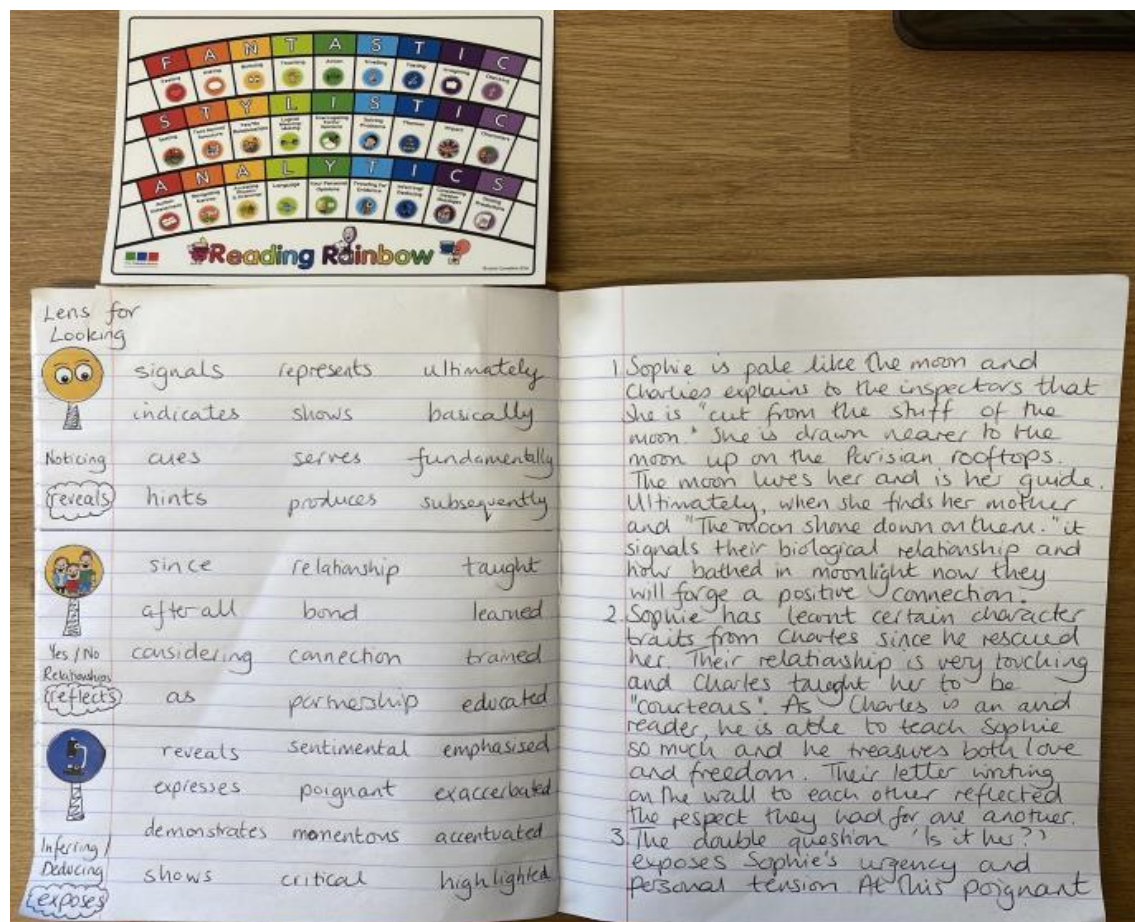 F A N T A S T I C
Feeling Asking Noticing Touching Action Smelling Tasting Imagining Checking
S T Y L I S T I C
L
A N A L Y T I C S
Language
Reading Rainbow
Lens for
Looking
signals represents ultimately
indicates shows basically
Noticing cues serves fundamentally
reveals hints produces subsequently
since relationship taught
after all bond learned
Yes / No considering connection trained
Relationships
reflects as partnership educated
reveals sentimental emphasised
expresses poignant exaccerbated
demonstrates momentous accentuated
Inferring /
Deducing shows critical highlighted
exposes
1. Sophie is pale like the moon and
Charles explains to the inspectors that
she is "cut from the stuff of the
moon." She is drawn nearer to the
moon up on the Parisian rooftops.
The moon loves her and is her guide.
Ultimately, when she finds her mother
and "The moon shone down on them." it
signals their biological relationship and
how bathed in moonlight now they
will forge a positive connection.
2. Sophie has learnt certain character
traits from Charles since he rescued
her. Their relationship is very touching
and Charles taught her to be
"courteous". As Charles is an avid
reader, he is able to teach Sophie
so much and he treasures both love
and freedom. Their letter writing
on the wall to each other reflected
the respect they had for one another.
3. The double question 'Is it her?'
exposes Sophie's urgency and
personal tension. At this poignant